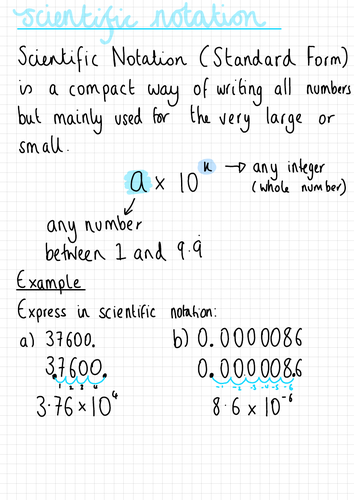 scientific notation
Scientific Notation (Standard Form)
is a compact way of writing all numbers
but mainly used for the very large or
small.
a × 10ⁿ → any integer
(whole number)
any number
between 1 and 9.9̇
Example
Express in scientific notation:
a) 37600. b) 0.0000086
3.7600. 0.000008.6
1 2 3 4 -1 -2 -3 -4 -5 -6
3.76 × 10⁴ 8.6 × 10⁻⁶